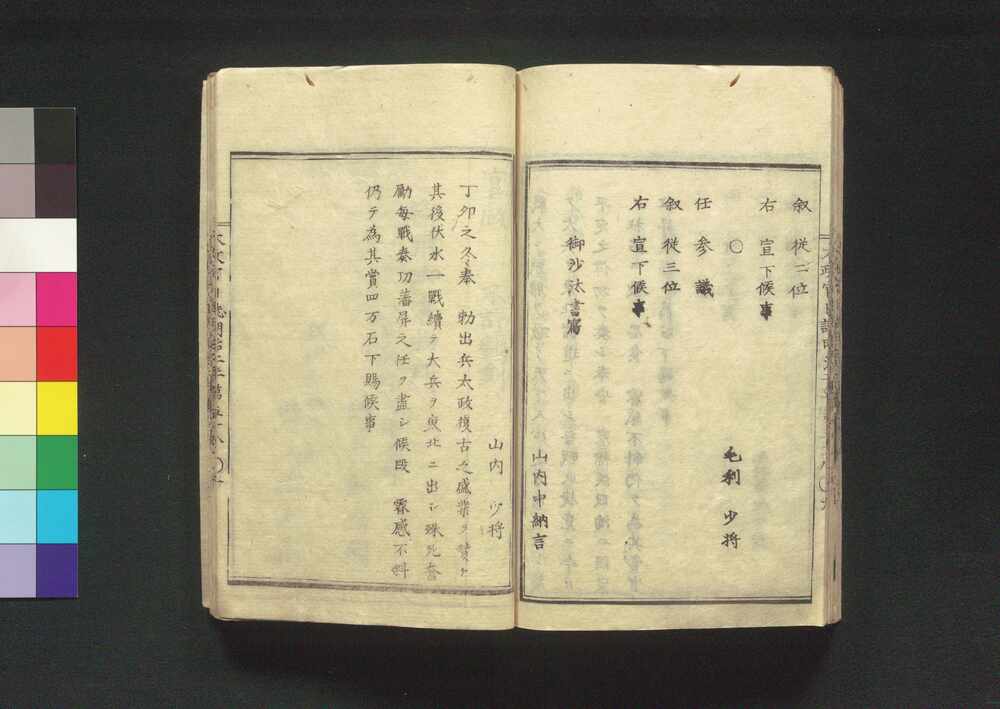 叙従二位
右宣下候事
〇
毛利少将
任参議
叙従三位
右宣下候事
御沙汰書寫
山内中納言
山内少将
丁卯之冬奉　勅出兵太政復古之盛業ヲ賛ケ
其後伏水一戰續テ大兵ヲ東北ニ出シ殊死奮
勵毎戰奏功藩屏之任ヲ盡シ候段　霖感不斜
仍テ為其賞四万石下賜候事